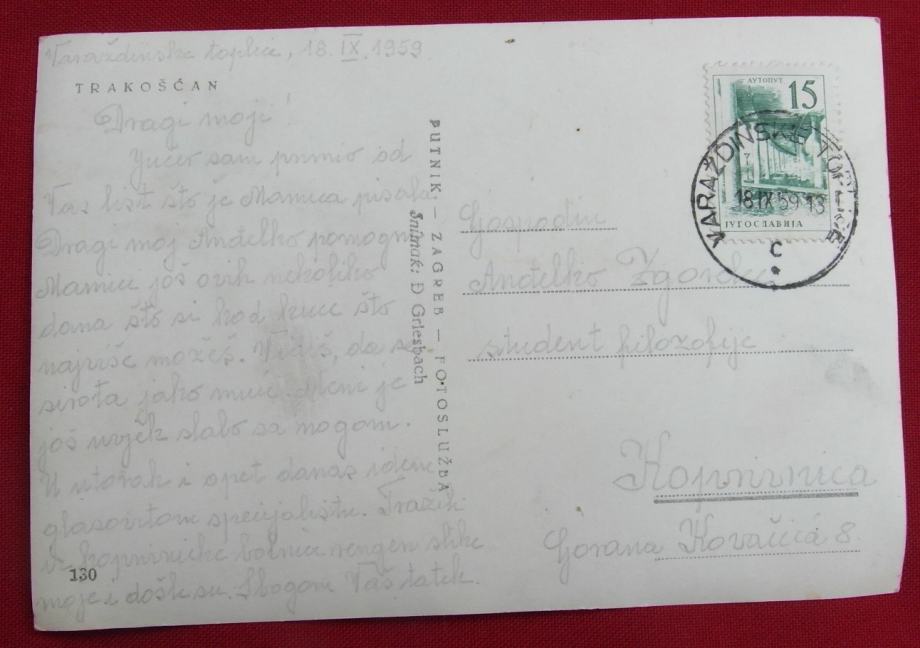 Varaždinske toplice, 18. IX. 1959
TRAKOŠĆAN
Dragi moji!
Jučer sam primio od
Vas list što je Mamica pisala.
Dragi moj Anđelko pomogni
Mamici još ovih nekoliko
dana što si kod kuće što
najviše možeš. Vidiš, da se
sirota jako muči. Meni je
još uvjek slabo sa nogom.
U utorak i opet danas idem
glasovitom specijalistu. Tražili
iz koprivničke bolnice rengen slike
moje i došle su. Sbogom Vaš tatek.
130
PUTNIK — ZAGREB — FOTOSLUŽBA
Snimak: Đ Griesbach
АУТОПУТ
15
ЈУГОСЛАВИЈА
VARAŽDINSKE TOPLICE
18 IX 59-13
C
Gospodin
Anđelko
student filozofije
Koprivnica
Gorana Kovačića 8.